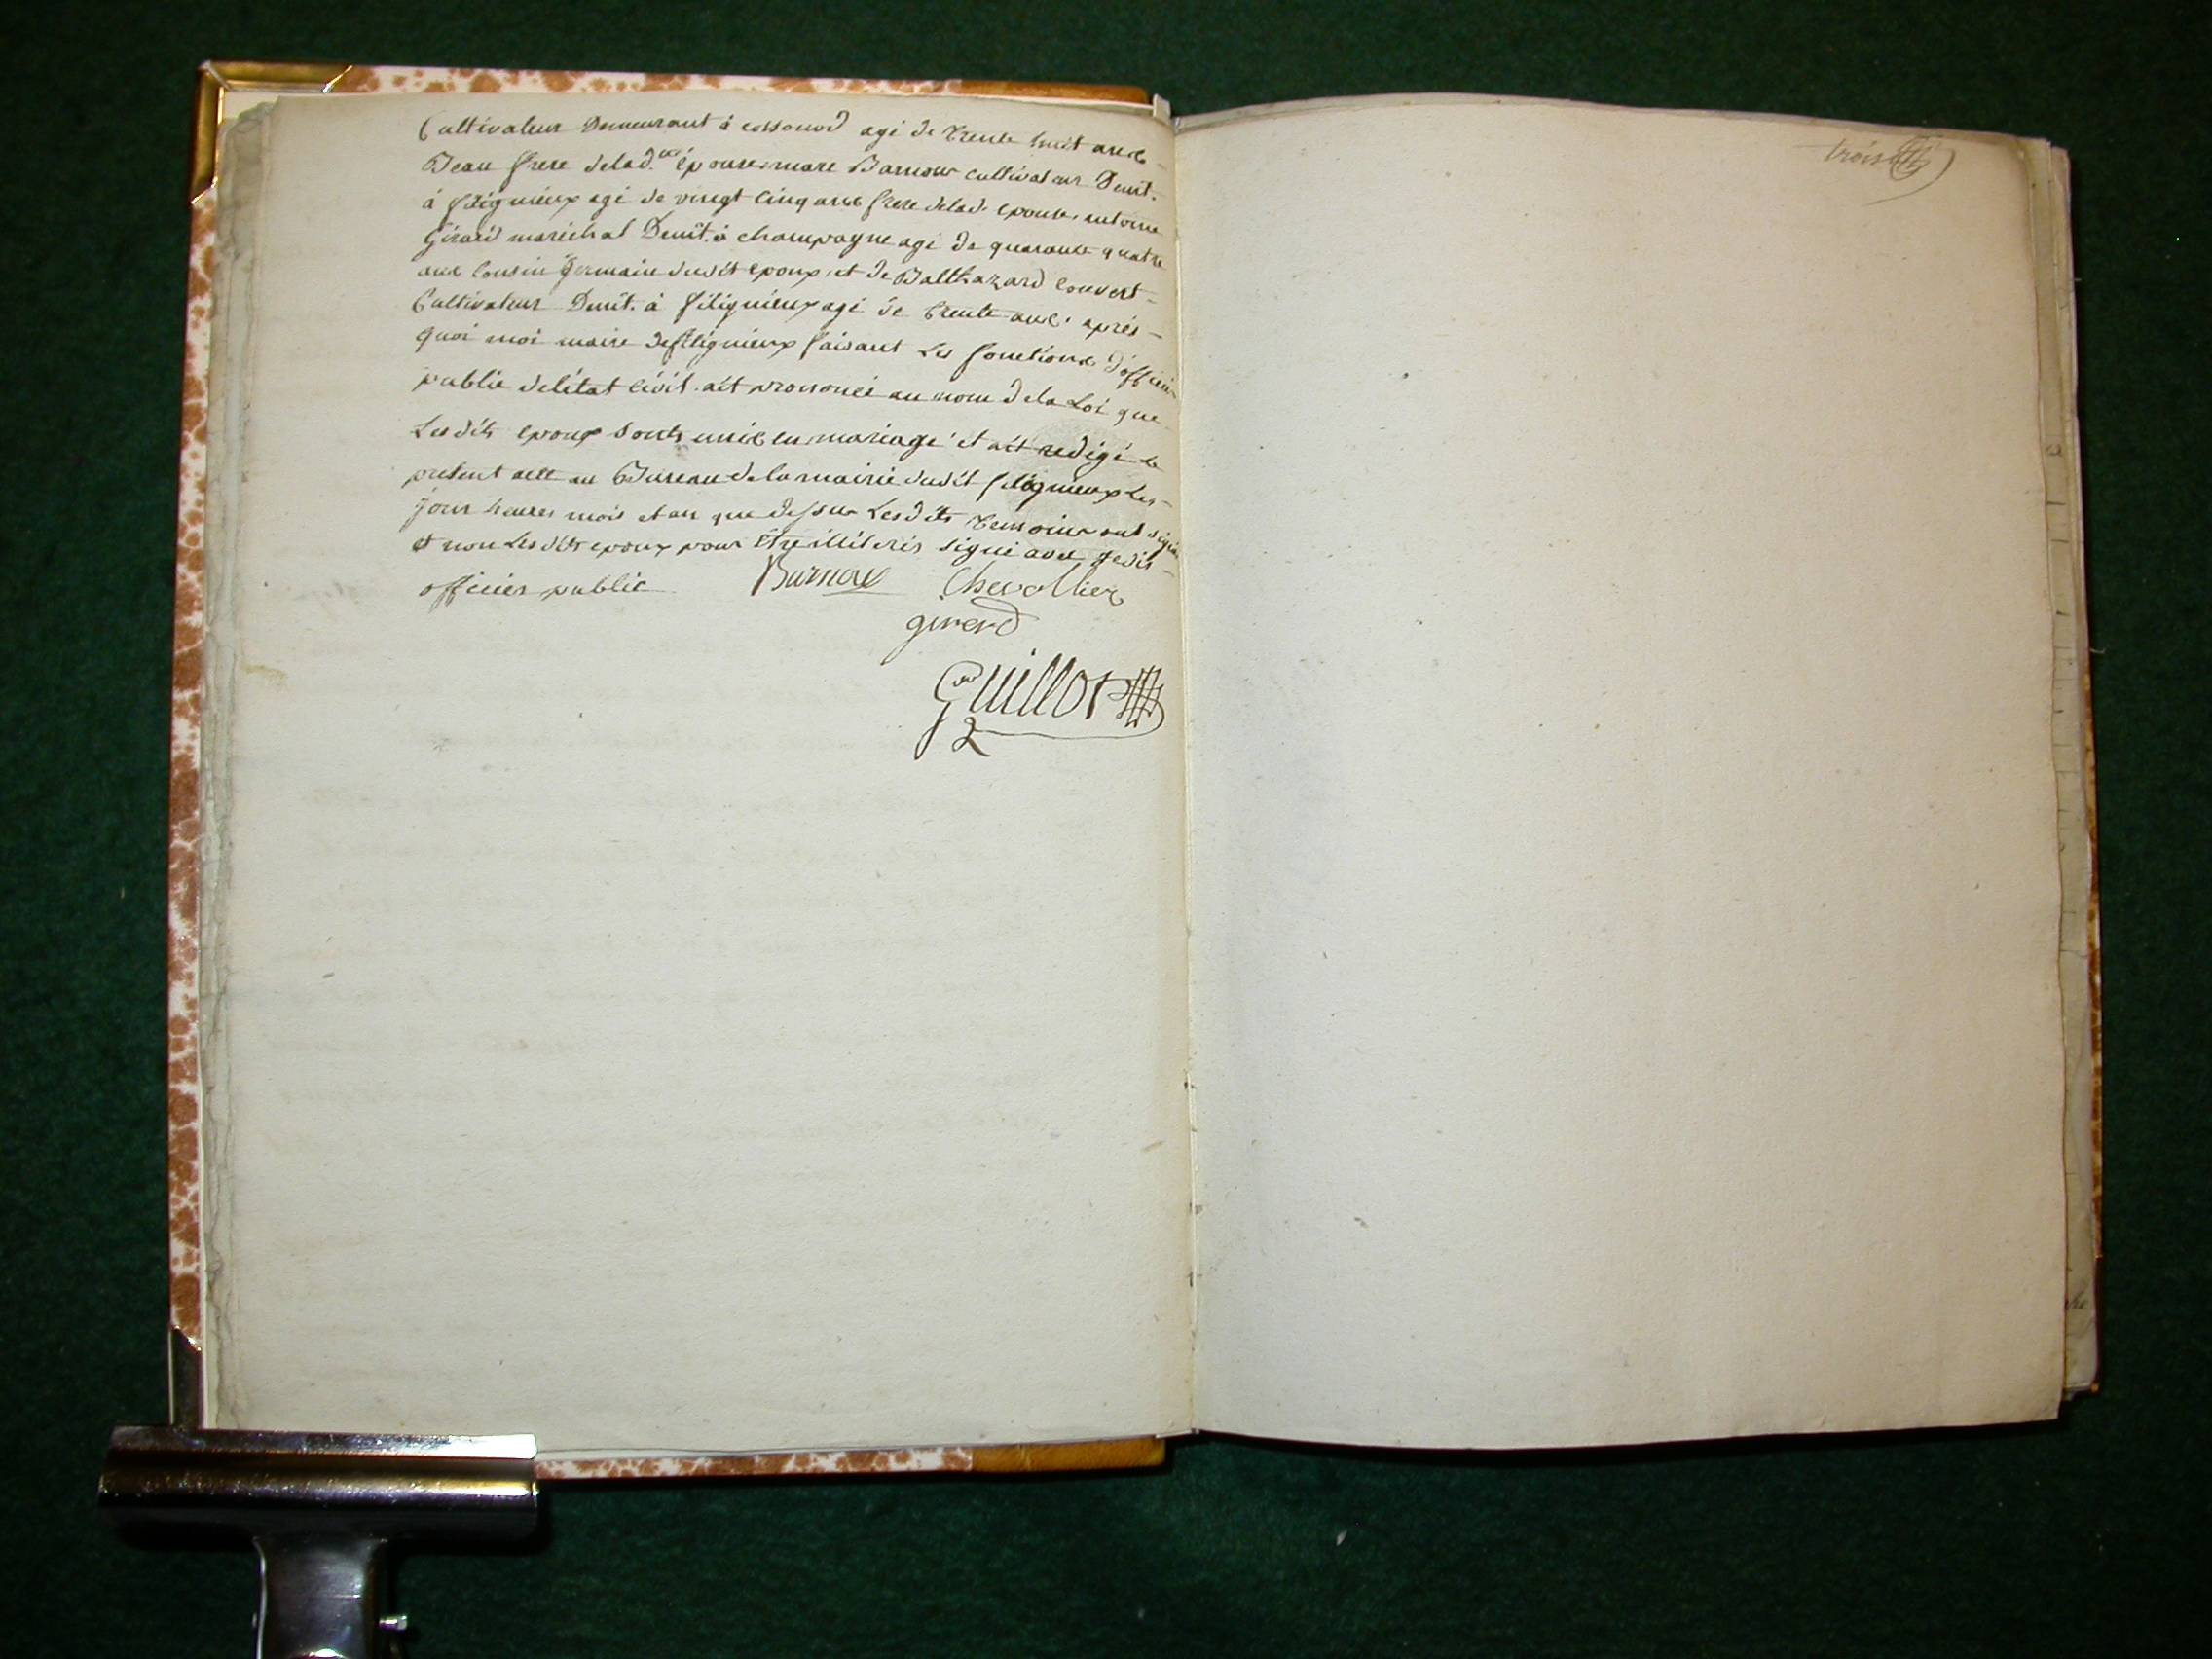 Cultivateur Demeurant à cossonod agé de trente huit ans
Beau frere delad. épouse, marc Barnoux cultivateur Demt.
á fitignieux agé de vingt cinq ans frere delad. epouse, antoine
Girard maréchal Demt. à champagne agé de quarante quatre
ans Cousin germain dudit epoux, et de Balthazard Couvert
Cultivateur Demt. à fitignieux agé de trente ans. aprés
quoi moi maire de fitignieux faisant Les fonctions d'officier
public deletat Civil. ait prononcé au nom dela Loi que
Lesdits epoux sonts unis en mariage et ait redigé le
present acte au Bureau de la mairie dudit fitignieux Les
jour heures mois et an que dessus Lesdits temoins ont signé
et non Lesdits epoux pour être illiterés signé avec
officier public Barnoux Chevallier
girerd
Guillot
trois